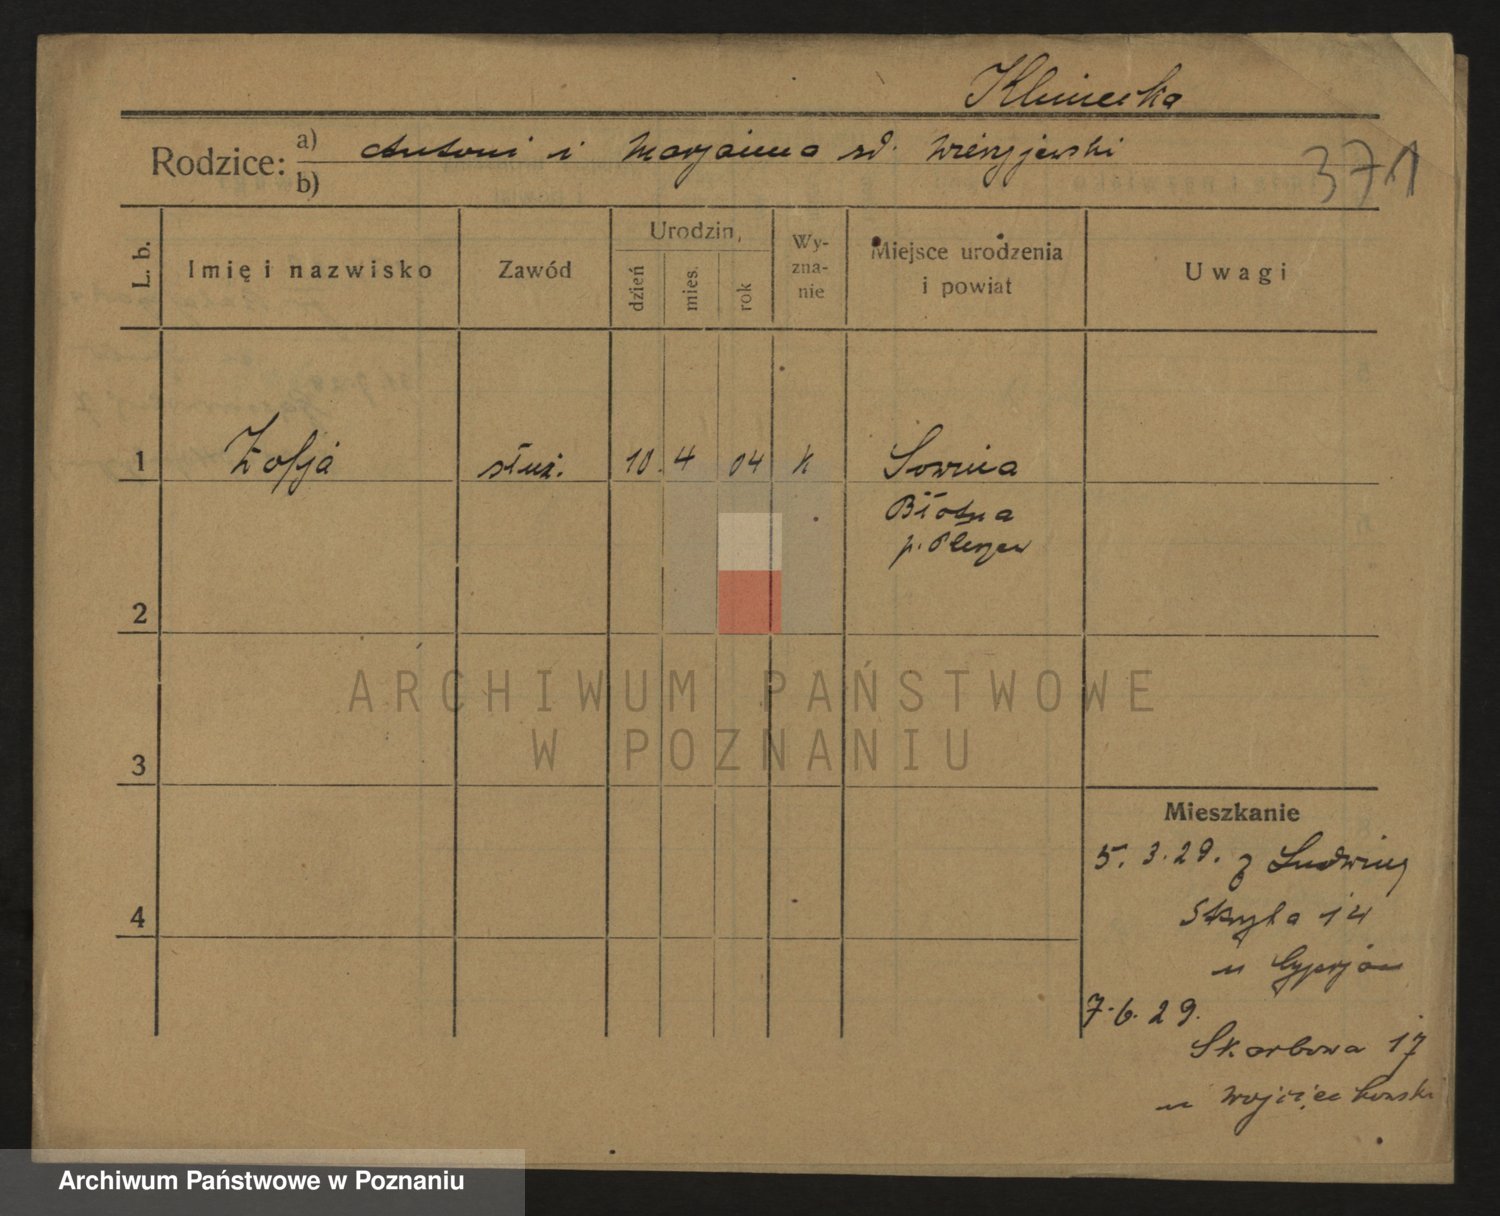 Klinecka
Rodzice: a) Antoni i Maryanna zd.
b)
371
L. b.
Imię i nazwisko
Zawód
Urodzin,
dzień
mies.
rok
Wy-
zna-
nie
Miejsce urodzenia
i powiat
Uwagi
1 Zofja służ. 10. 4 04 k Sowina
Błotna
p. Pleszew
2
3
4
ARCHIWUM PAŃSTWOWE
W POZNANIU
Mieszkanie
5. 3. 29. z Ludwiny
14
u
7. 6. 29.
Skarbowa 17
u Wojciechowski
Archiwum Państwowe w Poznaniu